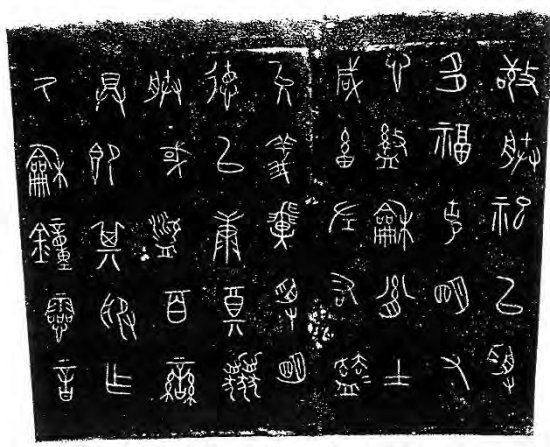 敬朕祀以受
多福克明又
心盭龢胤士
咸畜左右
允義翼受明
德以康奠協
朕或盜百蠻
具即其服乍
厥龢鐘音